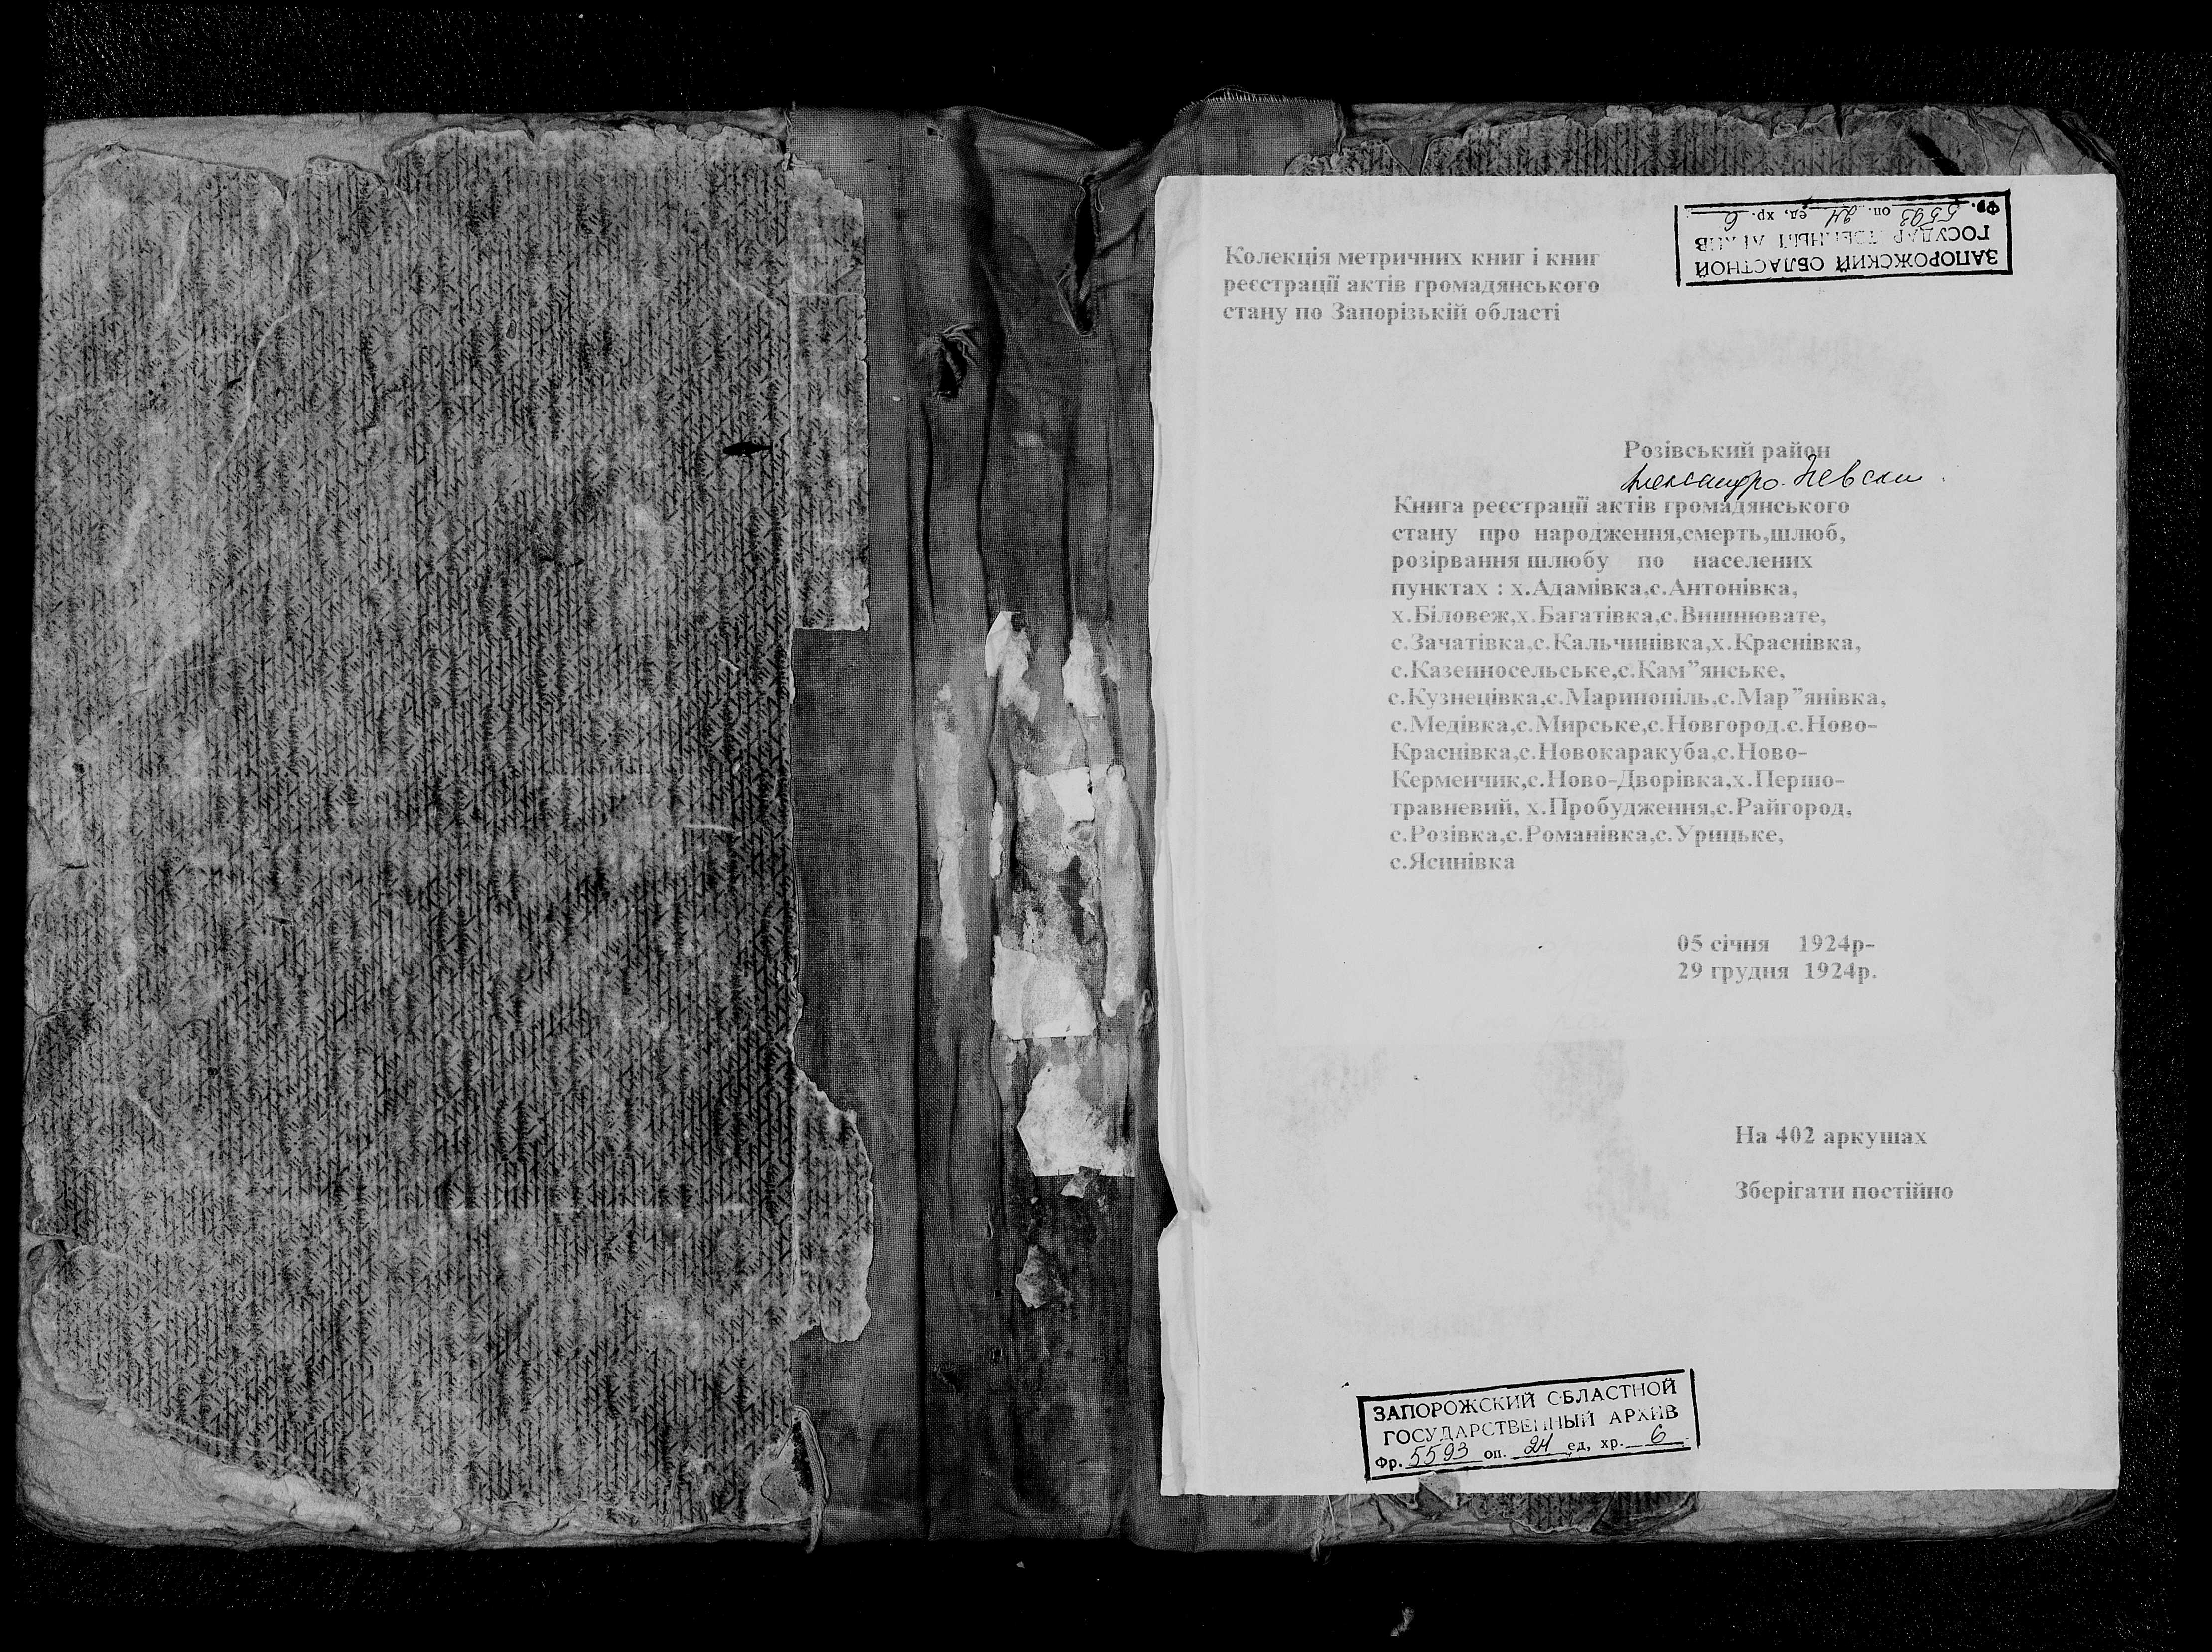 ЗАПОРОЖСКИЙ ОБЛАСТНОЙ
ГОСУДАРСТВЕННЫЙ АРХИВ
Фр. 5593 оп. 24 ед, хр. 6
Колекція метричних книг і книг
реєстрації актів громадянського
стану по Запорізькій області
Розівський район
Александро-Невски
Книга реєстрації актів громадянського
стану про народження,смерть,шлюб,
розірвання шлюбу по населених
пунктах : х.Адамівка,с.Антонівка,
х.Біловеж,х.Багатівка,с.Вишнювате,
с.Зачатівка,с.Кальчинівка,х.Краснівка,
с.Казенносельське,с.Кам”янське,
с.Кузнецівка,с.Маринопіль,с.Мар”янівка,
с.Медівка,с.Мирське,с.Новгород.с.Ново-
Краснівка,с.Новокаракуба,с.Ново-
Керменчик,с.Ново-Дворівка,х.Першо-
травневий, х.Пробудження,с.Райгород,
с.Розівка,с.Романівка,с.Урицьке,
с.Ясинівка
05 січня 1924р-
29 грудня 1924р.
На 402 аркушах
Зберігати постійно
ЗАПОРОЖСКИЙ ОБЛАСТНОЙ
ГОСУДАРСТВЕННЫЙ АРХИВ
Фр. 5593 оп. 24 ед, хр. 6